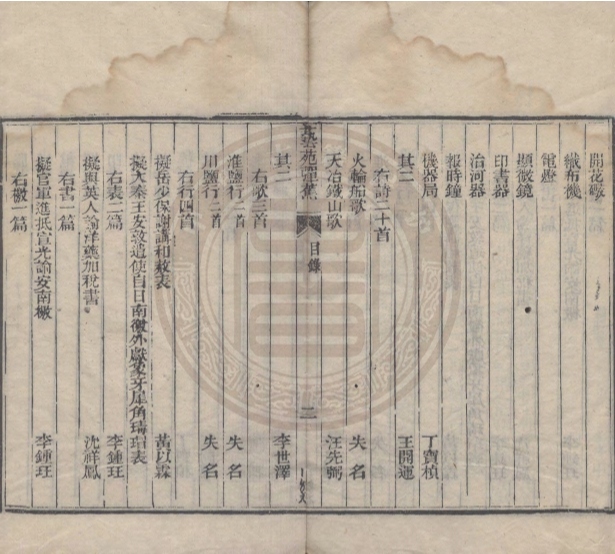 開花礮
織布機
電燈
顯微鏡
印書器
治河器
報時鐘
機器局 丁寶楨
其二 王闓運
右詩二十首
火輪船歌 失名
天冶鐵山歌 汪先弼
藝苑
目錄
二
其二 李世澤
右歌三首
淮鹽行二首 失名
川鹽行二首 失名
右行四首
擬岳少保謝講和赦表 黃以霖
擬大秦王安敦遣使自日南徼外獻象牙犀角瑇瑁表 李鍾珏
右表二篇
擬與英人論洋藥加稅書 沈祥鳳
右書一篇
擬官軍進抵宣光諭安南檄 李鍾珏
右檄一篇